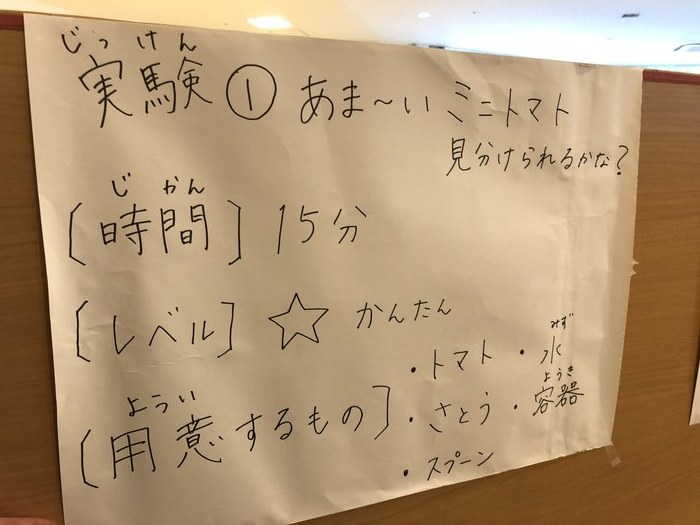 じっけん
実験① あま〜い ミニトマト
見分けられるかな?
じかん
[時間] 15分
[レベル] ☆ かんたん
みず
・トマト ・水
ようい
ようき
[用意するもの] ・さとう ・容器
・スプーン